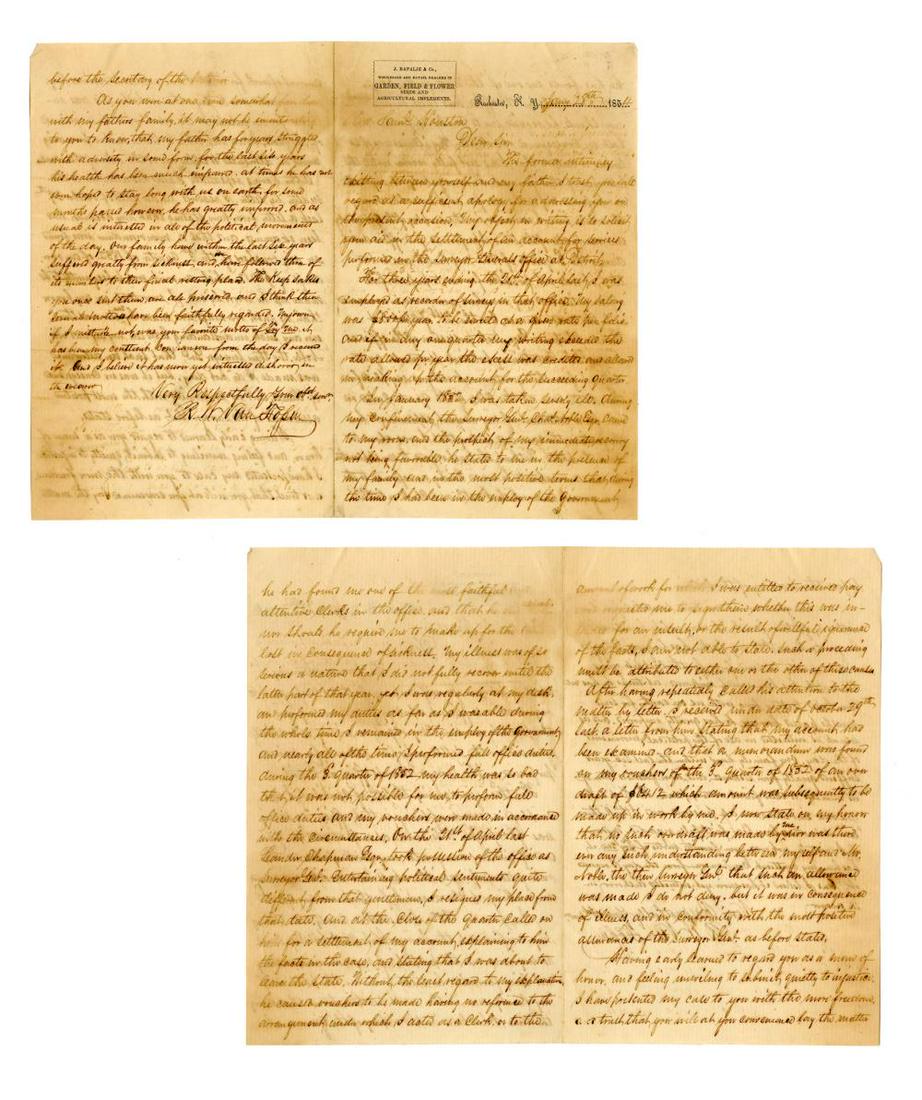 J. RAPALJE & Co.,
WHOLESALE AND RETAIL DEALERS IN
GARDEN, FIELD & FLOWER
SEEDS AND
AGRICULTURAL IMPLEMENTS.
Rochester, N. Y., 185
Houston
Dear Sir
The former intimacy
existing between yourself and my father I trust, you will
regard as a sufficient apology for addressing you on
the present occasion. My object in writing is to solicit
your aid in the settlement of an account for services
performed in the Surveyor Generals office at Detroit.
For three years ending the 21st of April last, I was
employed as recorder of Surveys in that office. My salary
was year. To be wrote at a given rate per folio.
and if in any one quarter my writing exceeded the
rate allowed pr year the excess was credited and allowed
in making up the account for the succeeding quarter
In January 1852, I was taken severely ill. During
my confinement, the Surveyor Genl. Chas. Noble Esq. came
to my room, and the prospect of my immediate recovery
not being favorable he stated to me in the presence of
my family and in the most positive terms that during
the time I had been in the employ of the Government
he had found me one of the most faithful
attentive Clerks in the office, and that he
nor should he require me to make up for the
lost in consequence of sickness. My illness was of so
serious a nature that I did not fully recover until the
latter part of that year, yet I was regularly at my desk
and performed my duties as far as I was able during
the whole time I remained in the employ of the Government,
and nearly all of the time I performed full office duties.
during the 3d quarter of 1852 my health was so bad
that it was not possible for me to perform full
office duties and my vouchers were made in accordance
with the circumstances. On the 21st of April last
Leander Chapman Esq. took possession of the office as
Surveyor Genl. Entertaining political sentiments quite
different from that gentleman, I resigned my place from
that date. And at the close of the quarter called on
him for a settlement of my account, explaining to him
the facts in the case, and stating that I was about to
leave the state. Without the least regard to my explanation
he caused vouchers to be made having no reference to the
arrangement under which I acted as a Clerk, or to the
amount of work for which I was entitled to received pay
and requested me to sign them whether this was in-
for an insult, or the result of willful ignorance
of the facts, I am not able to state. Such a proceeding
must be attributed to either one or the other of these causes
After having repeatedly called his attention to the
matter by letter, I received under date of October 29th
last a letter from him stating that my account had
been examined and that a memorandum was found
on my vouchers of the 3d quarter of 1852 of an over
draft of which amount was subsequently to be
made up in work by me. I now state on my honor
that no such overdraft was made by me nor was there
ever any such understanding between myself and Mr.
Noble, the then Surveyor Genl. that such an allowance
was made I do not deny. but it was in consequence
of illness, and in conformity with the most positive
assurances of the Surveyor Genl. as before stated.
Having early learned to regard you as a man of
honor, and feeling unwilling to submit quietly to injustice,
I have presented my case to you with the more freedom,
and trust that you will at you convenience lay the matter
before the Secretary of the Interior
As you were at one time somewhat familiar
with my fathers family, it may not be uninteresting
to you to know, that my father has for years struggled
with adversity in some form, for the last six years
his health has been much impaired. at times he has not
even hoped to stay long with us on earth, for some
months passed however, he has greatly improved, and as
usual is interested in all of the political movements
of the day. Our family have within the last six years
suffered greatly from sickness and have followed three of
its members to their final resting place. The keep sakes
you once sent them are all preserved and I think their
mottoes have been faithfully regarded. My own
if I mistake not, was your favorite motto of "Try Me" it
has been my constant companion from the day I received
it. And I believe it has never yet witnessed dishonor in
the wearer
Very Respectfully Your Obd. Servt.
R. H. Van